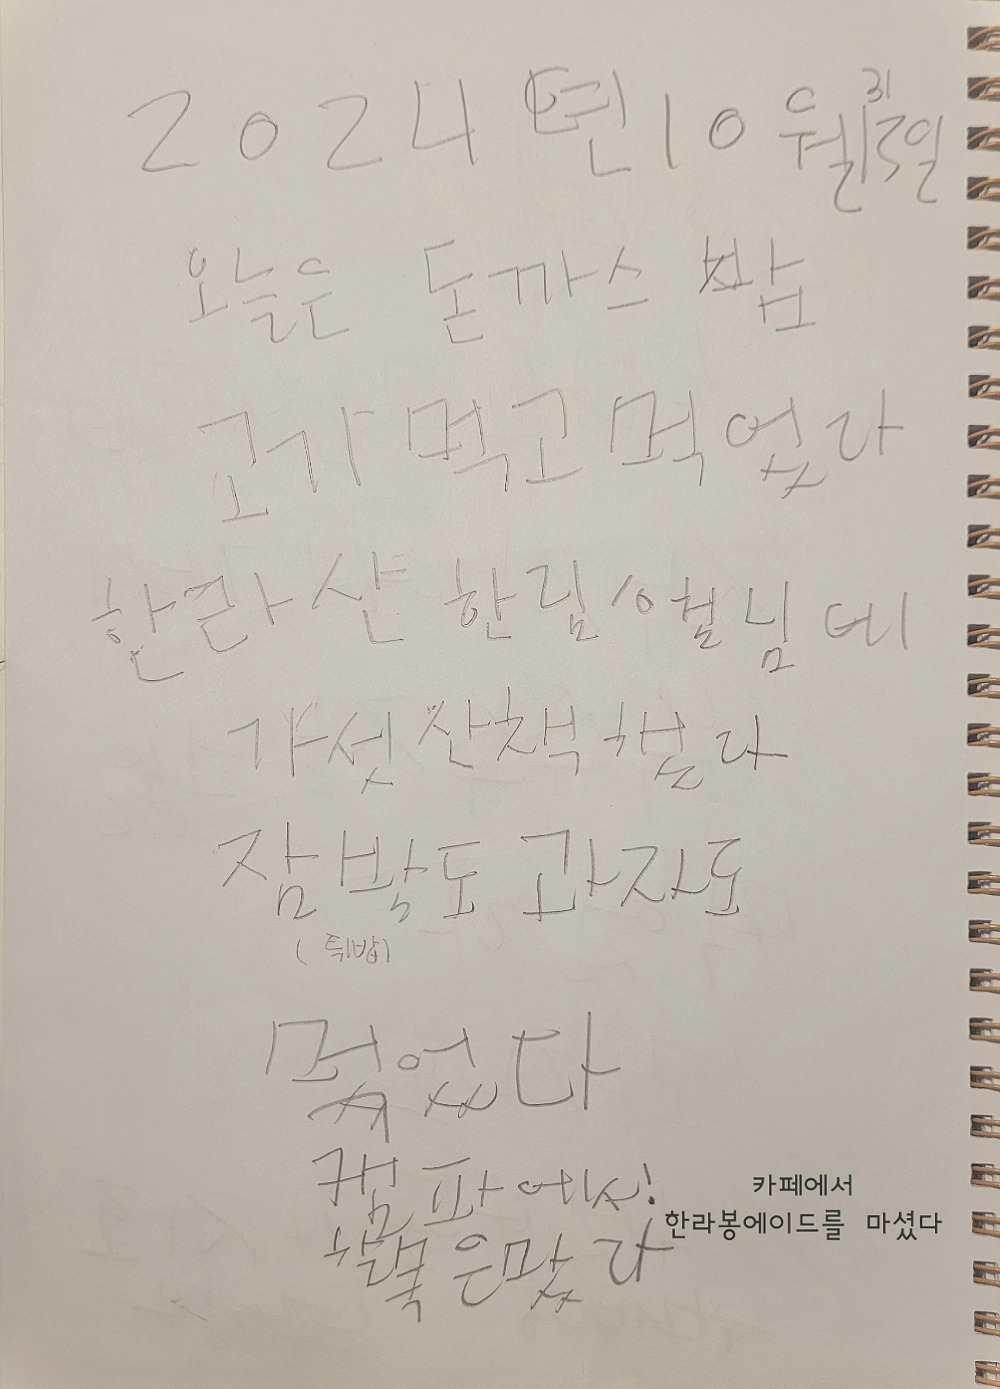 2024년10월31일
오늘은 돈까스 밤
고기 먹고 먹었다
한라산 한림 이철님네
가섯 잔책 했다
잠박도 과자도
(튀밥)
먹었다
캠파에서!
카페에서
한라봉에이드를 마셨다